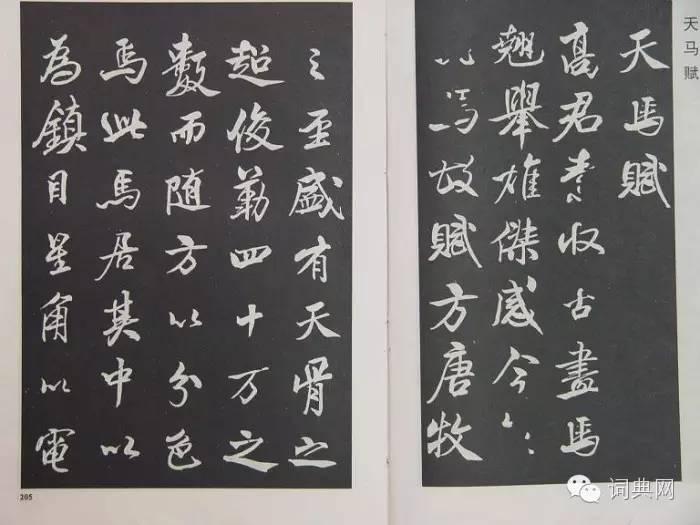 天马赋
天馬賦
高君素收古畫馬
翹舉雄傑感今
馬故賦方唐牧
之至盛有天骨之
超俊勒四十万之
數而随方以分色
焉此馬居其中以
為鎮目星角以電
205
词典网